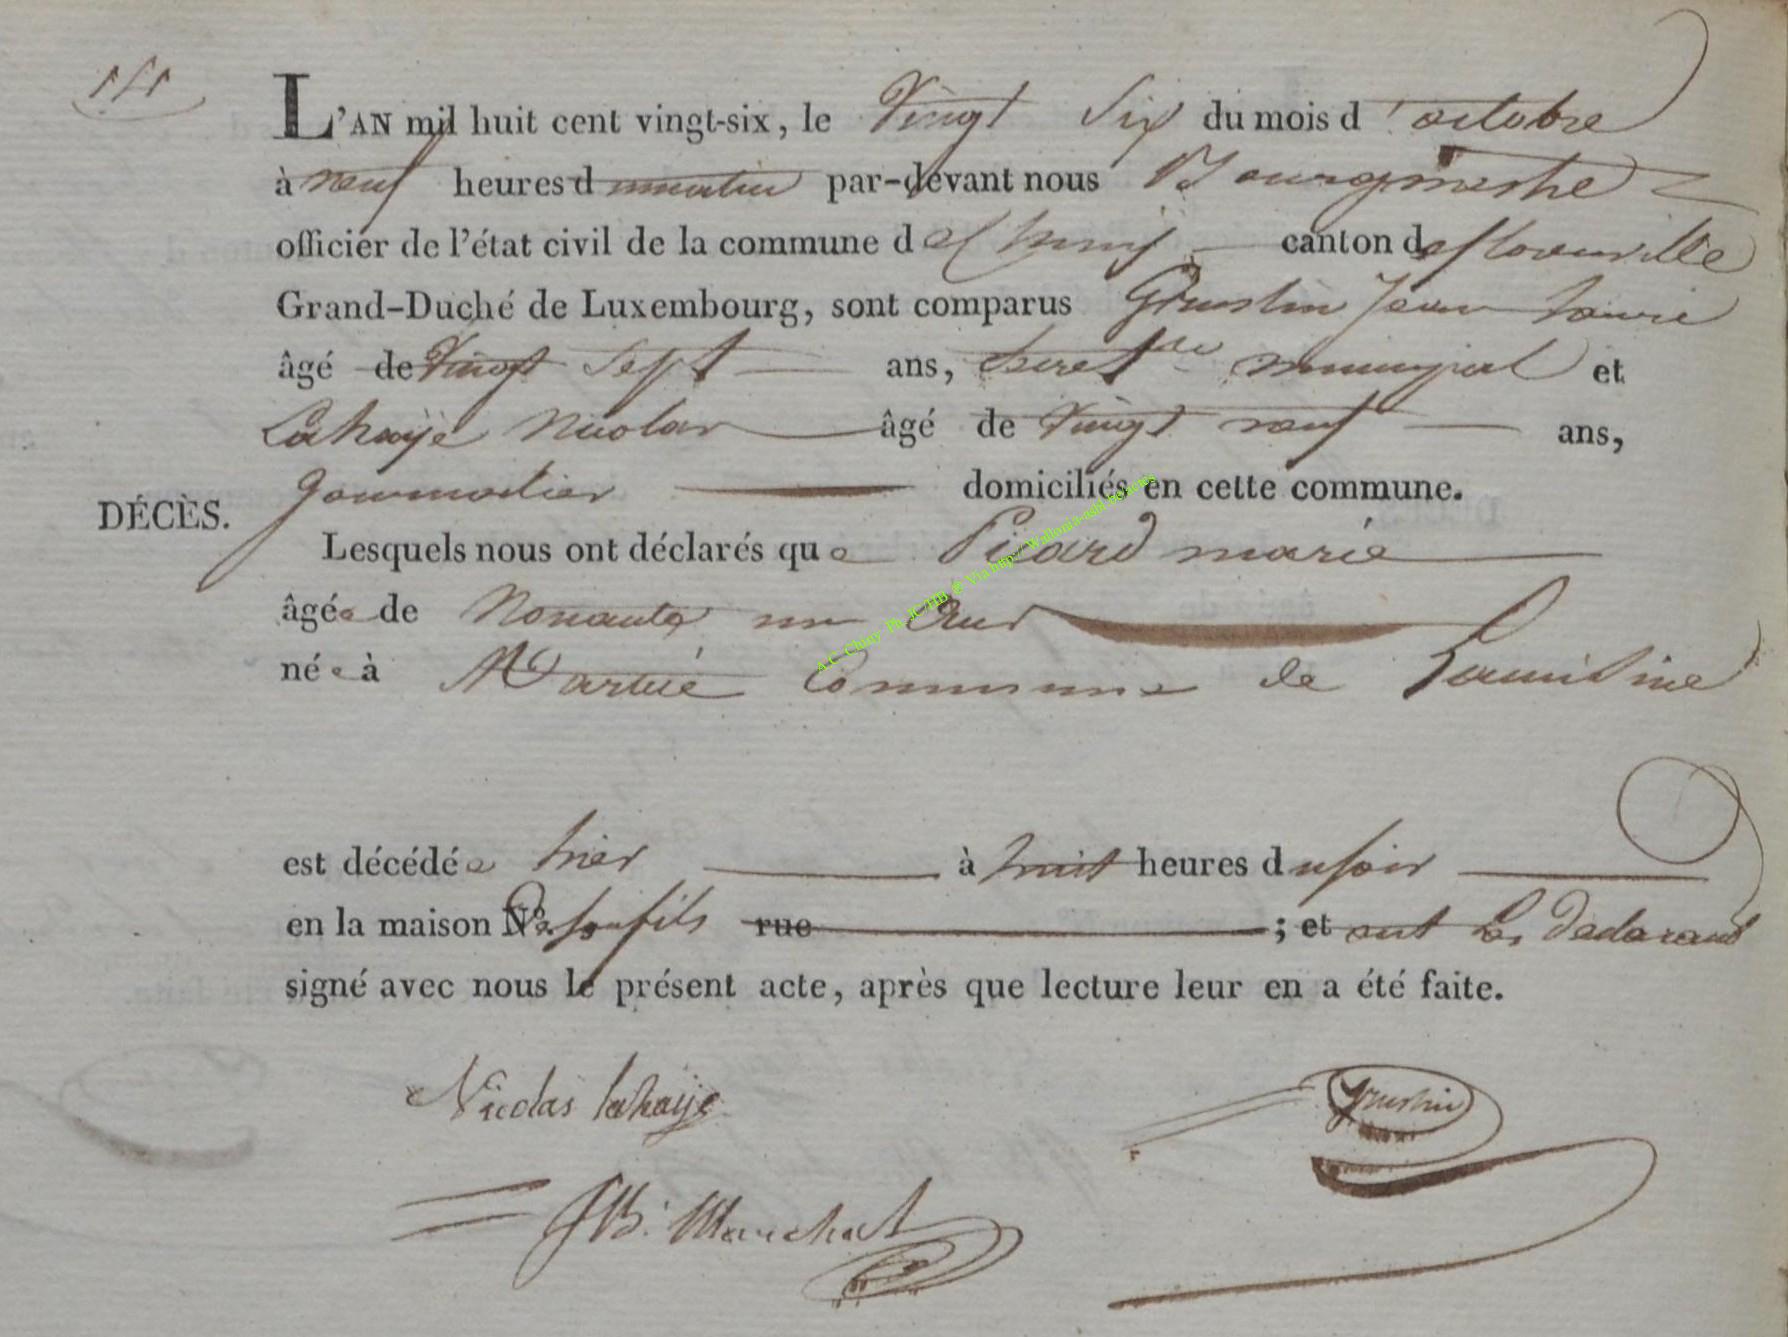 L'AN mil huit cent vingt-six, le Vingt Six du mois d'octobre
à neuf heures du matin par-devant nous Bourgmestre
officier de l'état civil de la commune de Chiny canton de florenville
Grand-Duché de Luxembourg, sont comparus Grustin Jean
âgé de Vingt Sept ans, Secretre municipal et
Lahaÿe Nicolas âgé de Vingt neuf ans,
Journalier domiciliés en cette commune.
DÉCÈS.
Lesquels nous ont déclarés que Picard marie
âgée de Nonante un Ans
née à Martué Commune de
est décédée hier à huit heures du soir
en la maison No. De son fils rue ; et ont Les Declarans
signé avec nous le présent acte, après que lecture leur en a été faite.
Nicolas lahaÿe Grustin
JB. Marechal
A.C. Chiny Ph. JC/HB @ Via http://Wallonia-asbl.be/actes